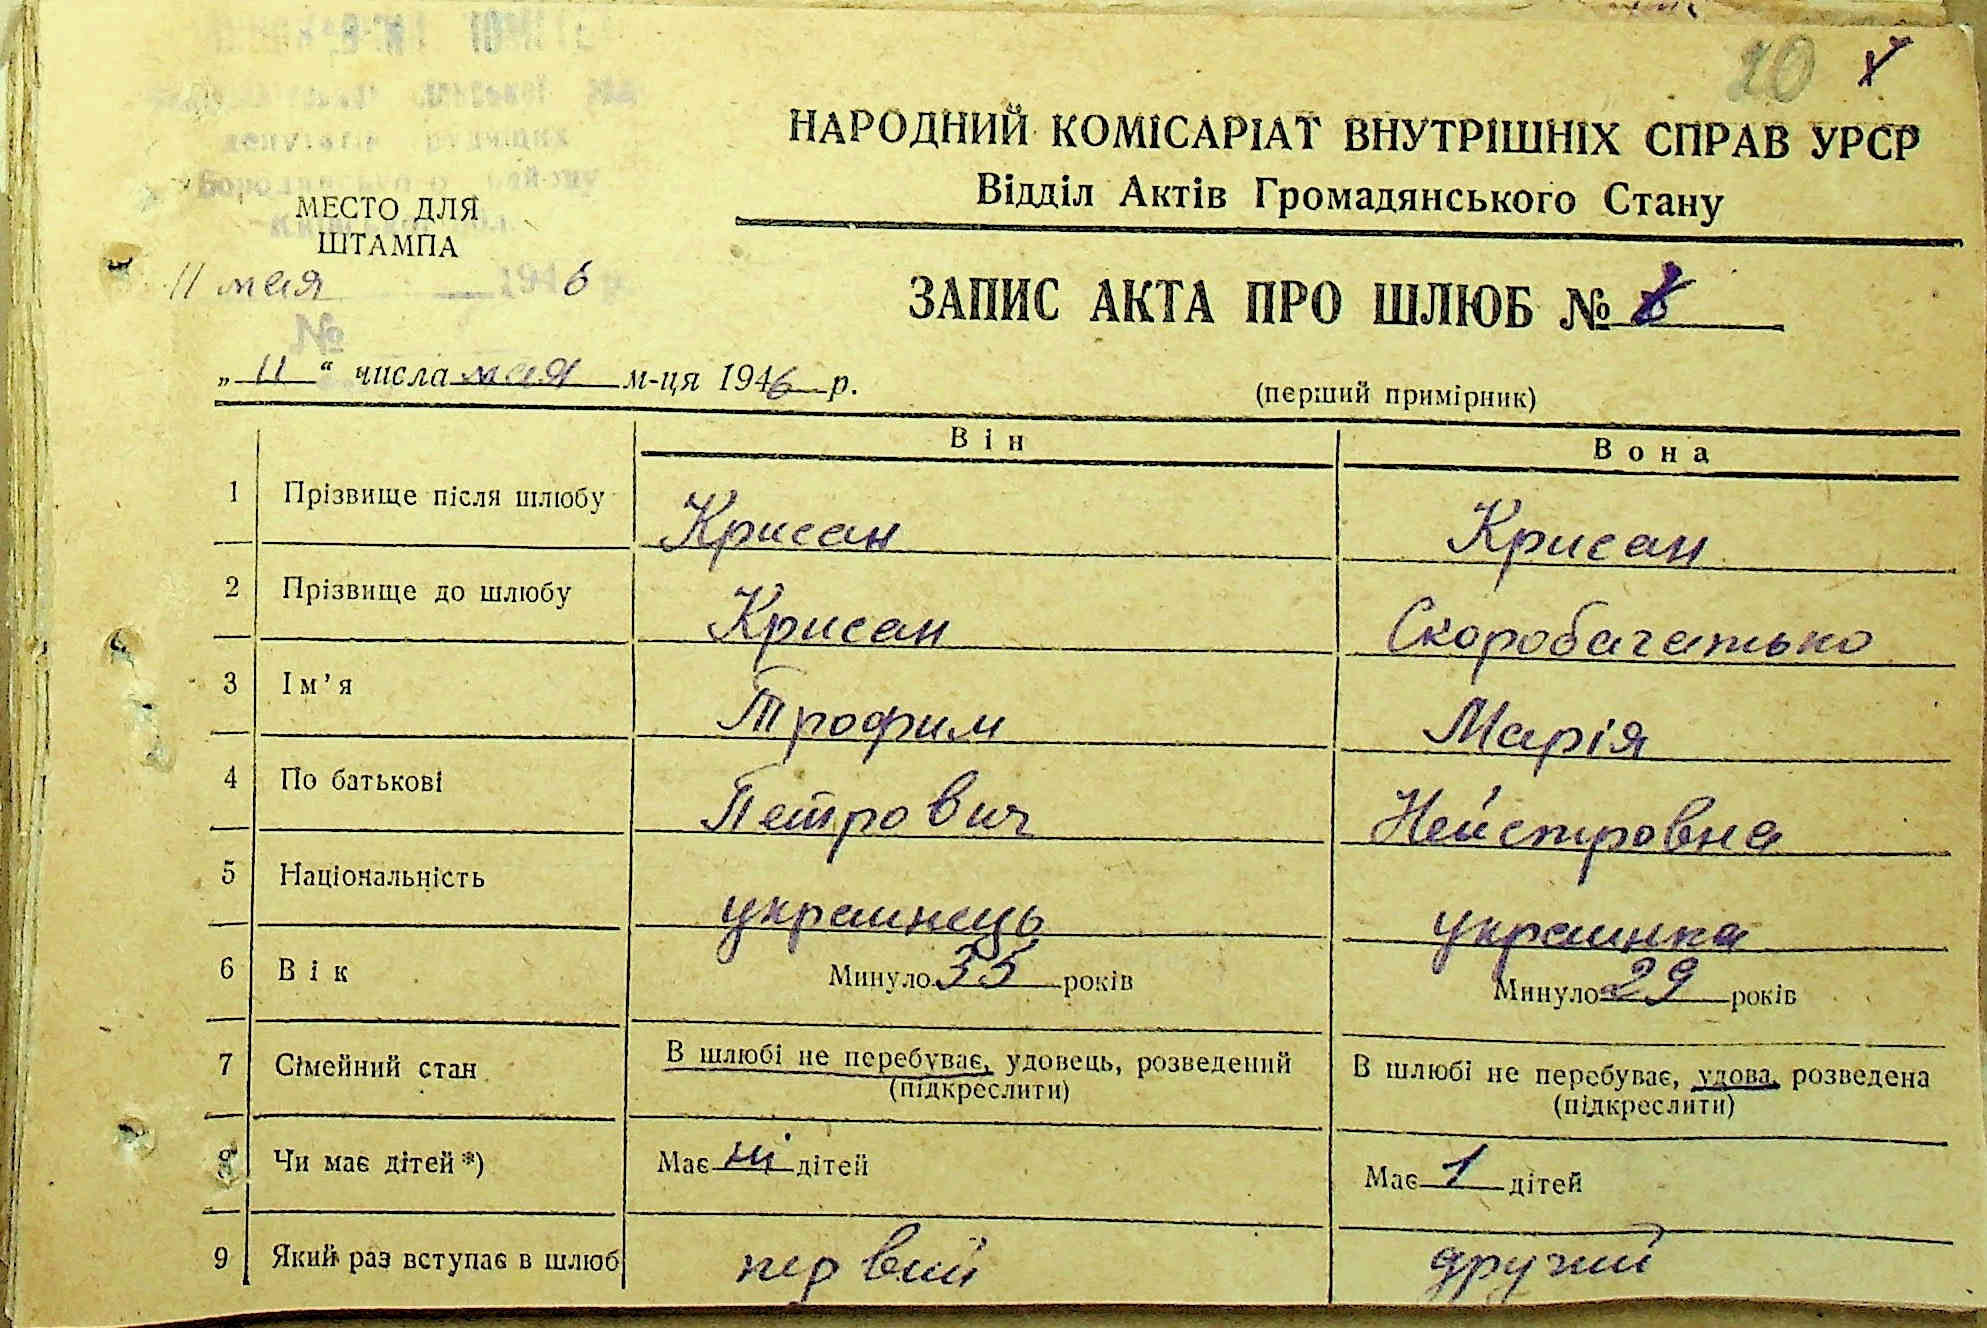 20
НАРОДНИЙ КОМІСАРІАТ ВНУТРІШНІХ СПРАВ УРСР
Відділ Актів Громадянського Стану
депутатів трудящих
Бородянського району
МЕСТО ДЛЯ
ШТАМПА
11 мая 1946 р.
№
ЗАПИС АКТА ПРО ШЛЮБ №
„ 11 “ числа мая м-ця 1946 р.
(перший примірник)
Він Вона
1 Прізвище після шлюбу Крисан Крисан
2 Прізвище до шлюбу Крисан Скоробагатько
3 Ім’я Трофим Марія
4 По батькові Петрович Нейстровна
5 Національність украинець украинка
6 Вік Минуло 35 років Минуло 29 років
7 Сімейний стан В шлюбі не перебуває, удовець, розведений В шлюбі не перебуває, удова, розведена
(підкреслити) (підкреслити)
8 Чи має дітей*) Має ні дітей Має 1 дітей
9 Який раз вступає в шлюб первий другий